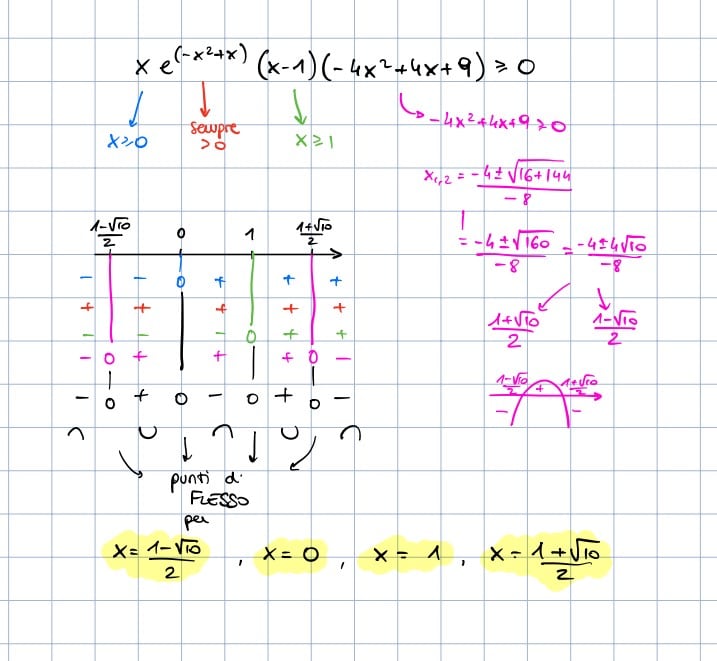 x e^(-x²+x) (x-1)(-4x²+4x+9) ≥ 0
x≥0
sempre
>0
x≥1
-4x²+4x+9≥0
x₁,₂ = -4±√16+144 / -8
= -4±√160 / -8 = -4±4√10 / -8
1+√10 / 2
1-√10 / 2
1-√10 / 2
1+√10 / 2
+
- -
1-√10 / 2
0
1
1+√10 / 2
- - 0 + + +
+ + + + +
- - - 0 + +
- 0 + + + 0 -
- 0 + 0 - 0 + 0 -
∩ ∪ ∩ ∪ ∩
punti di
FLESSO
per
x = 1-√10 / 2 , x = 0 , x = 1 , x = 1+√10 / 2